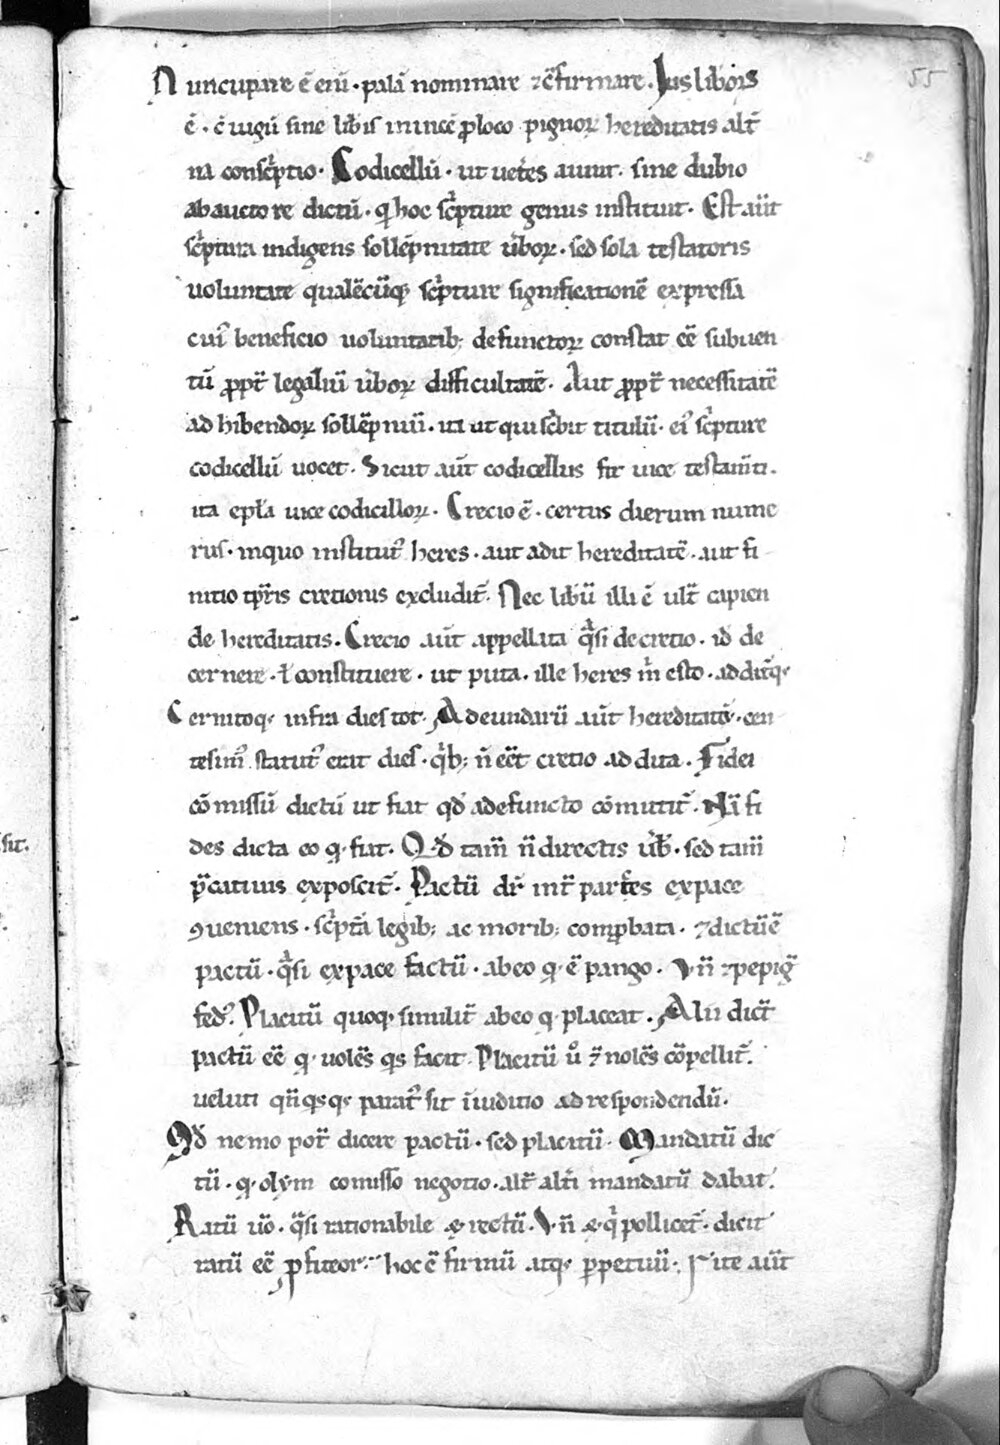 55
Nuncupare ē eni᷃ · pala᷃ nominare ⁊ c̄firmare. Jus liboꝝ
ē · c̄iugu᷃ sine lib̄is inuicē ꝓ loco pignoꝝ hereditatis alt̄
na conſcⁱptio · Codicellū · ut uet̄es aiunt · sine dubio
ab auctore dictū · q̇ hoc scⁱpture genus instituit · Est aūt
scⁱptura indigens sollēpnitate ūboꝝ · sed sola testatoris
uoluntate qualēcūq; scⁱpture significationē expressa
cuiꝰ beneficio uoluntatib; defunctoꝝ constat eē subuen
tū ꝓpt̄ legaliū ūboꝝ difficultatē · Aut ꝓpt̄ necessitatē
adhibendoꝝ sollēpniū · ita ut qui scⁱbit titulū · eiꝰ scⁱpture
codicellū uocet · Sicut aūt codicellus fit uice testam̄ti ·
ita epl̄a uice codicilloꝝ · Crecio ē · certus dierum nume
rus · inquo institutꝰ heres · aut adit hereditatē · aut fi
nitio tp̄ris cretionis excludit᷑ · Nec lib̄ū illi ē ult̄ capien
de hereditatis · Crecio aūt appellata q̄si decretio · id̄ de
cernere · ł constituere · ut puta · ille heres m̄ esto · additq;
Cernitoq; infra dies tot · Adeundarū aūt hereditatū · cen
tesimꝰ statutꝰ erat dies · qⁱb; n̄ eēt cretio addita · Fidei
cōmissū dictū ut fiat qd̄ adefuncto cōmittit᷑ · Nā fi
des dicta eo q · fiat · Qd̄ tam̄ n̄ directis ūb̄ · sed tam̄
p̄catiuis exposcit᷑ · Pactū dr̄ int̄ partes expace
ꝯueniens · scⁱpta᷃ legib; ac morib; comꝓbata · ⁊ dictū ē
pactū · q̄si expace factū · abeo q · ē pango · Vn̄ ⁊ pepig̃
fed̾ꝰ. Placitū quoq; similit̄ abeo q · placeat · Alii dict̄
pactū eē q · uolēs qs facit · Placitū ů ⁊ nolēs cōpellit᷑ ·
ueluti qn̄ qsq; paratꝰ sit ī iuditio ad respondendū ·
Qd̄ nemo pot̄ dicere pactū · sed placitū · Mandatū dic
tū · q · olym comisso negotio · alt̄ alt̄i mandatū dabat ·
Ratū ūo · q̄si rationabile & rectū · Vn̄ & qⁱ pollicet᷑ · dicit
ratū eē ꝓfiteor · hoc ē firmū atq; ꝑpetuū · Rite aūt
sit.